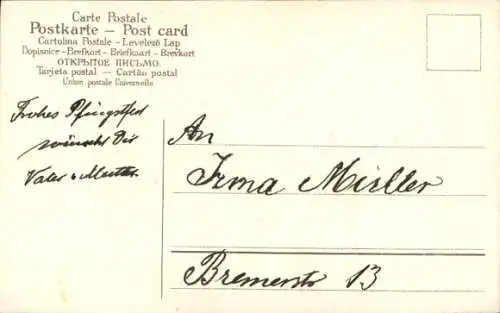 Carte Postale
Postkarte – Post card
Cartolina Postale – Levelező Lap
Dopisnice – Brefkort – Briefkaart – Brevkort
ОТКРЫТОЕ ПИСЬМО.
Tarjeta postal – Cartão postal
Union postale Universelle.
Frohes Pfingstfest
wünscht Dir
Vater u. Mutter.
An
Irma Müller
Bremerstr 13